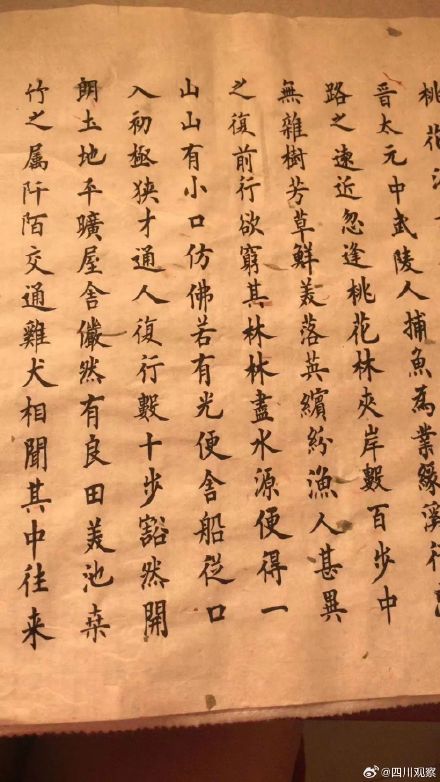 桃花
晉太元中武陵人捕魚為業緣溪行
路之遠近忽逢桃花林夾岸數百步中
無雜樹芳草鮮美落英繽紛漁人甚異
之復前行欲窮其林林盡水源便得一
山山有小口仿佛若有光便舍船從口
入初極狹才通人復行數十步豁然開
朗土地平曠屋舍儼然有良田美池桒
竹之屬阡陌交通雞犬相聞其中往来
@四川观察